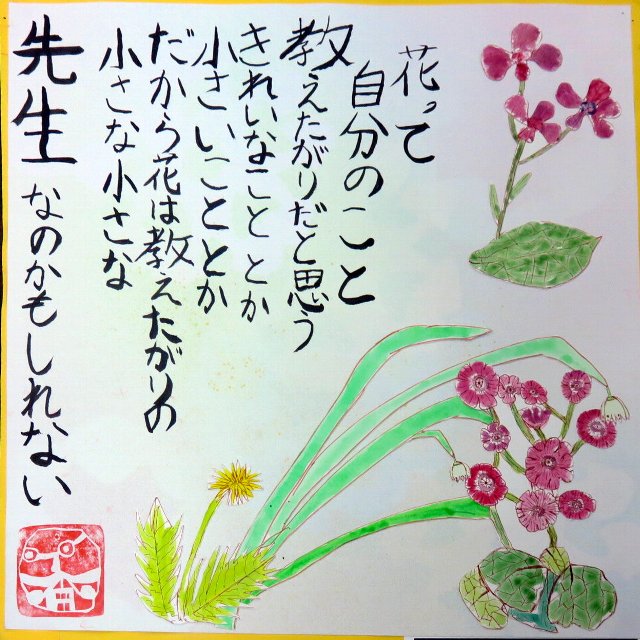 花って
自分のこと
教えたがりだと思う
きれいなこととか
小さいこととか
だから花は教えたがりの
小さな小さな
先生なのかもしれない